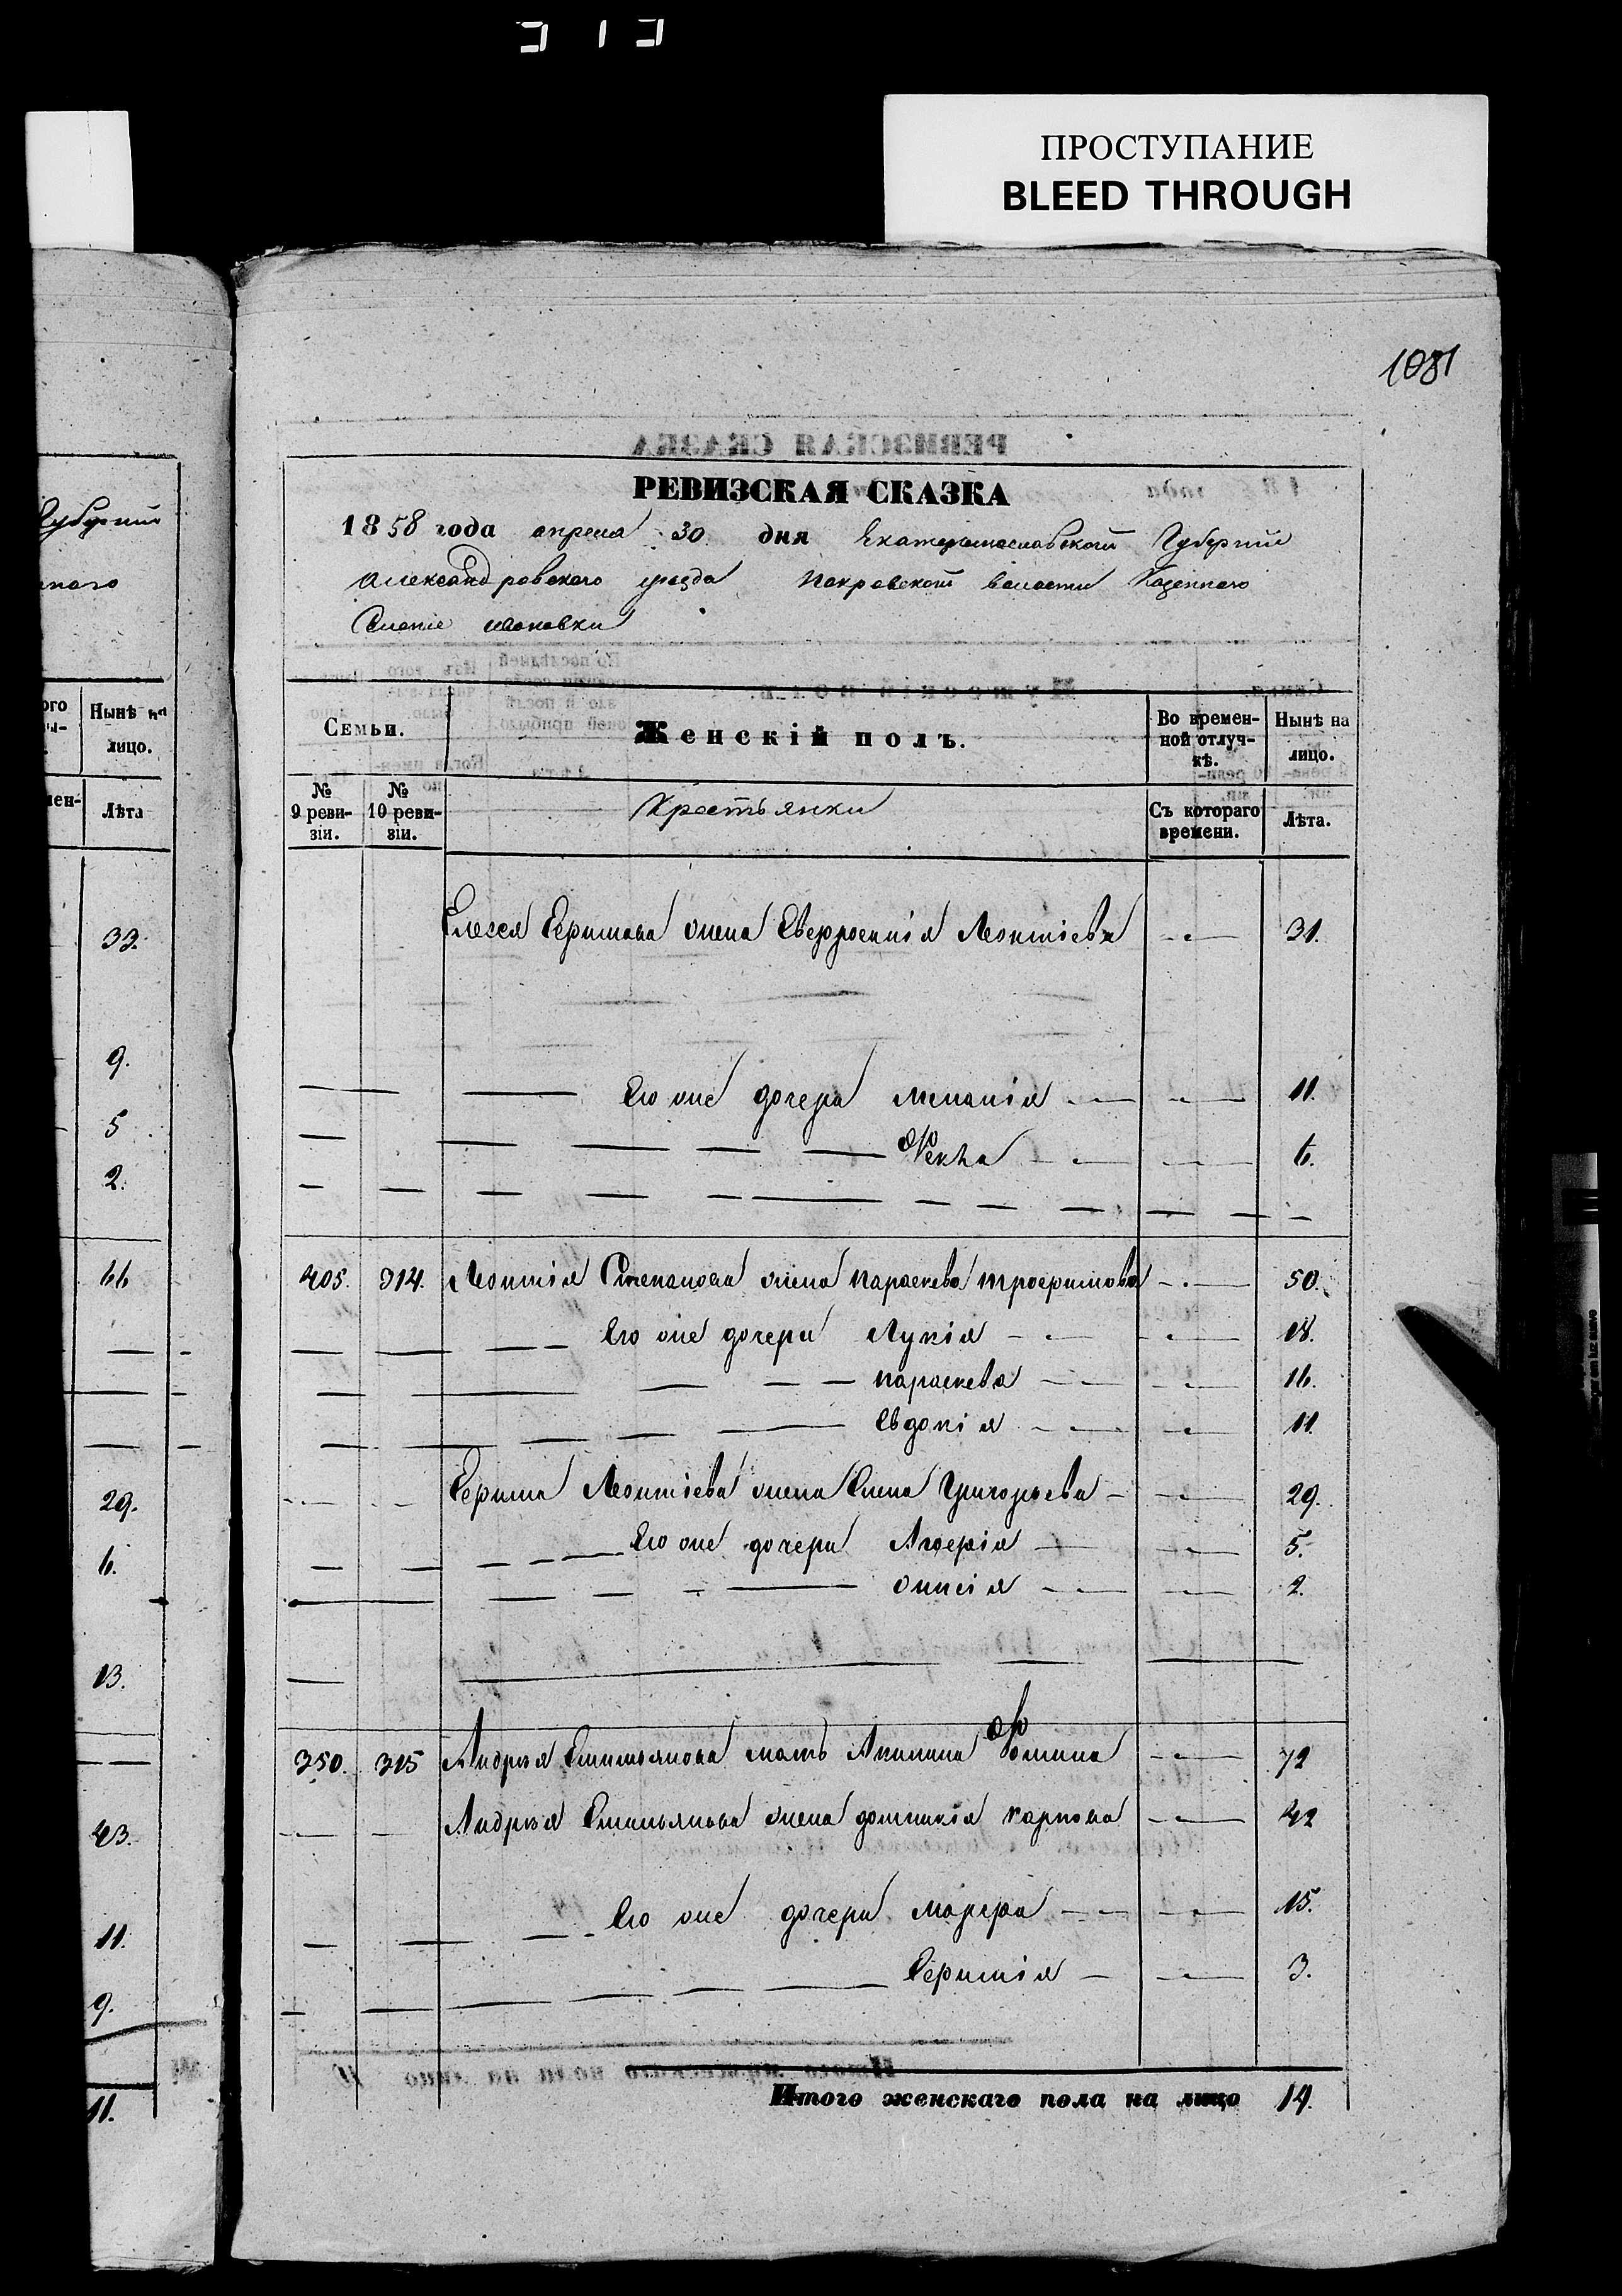 ПРОСТУПАНИЕ
BLEED THROUGH
1081
РЕВИЗСКАЯ СКАЗКА
1858 года апреля 30 дня Екатеринославской Губернiи
Александровского уезда Покровской волости Казенного
Губернiи
Семьи.
Женскiй полъ.
Во времен-
ной отлуч-
кѣ.
Нынѣ на
лицо.
№
9 реви-
зiи.
№
10 реви-
зiи.
Крестьянки
Съ котораго
времени.
Лѣта.
Нынѣ на
лицо.
Лѣта
Елесея Ефимова жена Евфросинiя Леонтiева 31.
Его же дочери Меланiя 11.
Фекла 6.
405. 314. Леонтiя Степанова жена параскева трофимова 50.
Его же дочери Лукiя 18.
параскева 16.
Евдокiя 11.
Ефима Леонтiева жена Елена Григорьева 29.
Его же дочери Агафiя 5.
2.
350. 315 Андрея Емильянова мать Акилина Фомина 72
Андрея Емильянова жена домникiя карпова 42
Его же дочери марфа 15.
Ефимiя 3.
Итого женскаго пола на лицо 14.
33.
9.
5
2.
66
29.
6.
13.
43.
11.
9.
11.